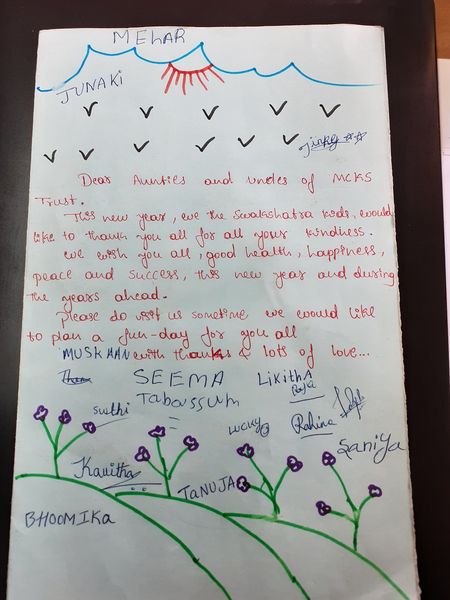 MEhAR
JUNAKi
Jinky
Dear Aunties and uncles of MCKS
Trust.
This new year, we the Swakshatra kids, would
like to thank you all for all your kindness.
we wish you all, good health, happiness,
peace and success, this new year and during
the years ahead.
Please do visit us sometime we would like
to plan a fun-day for you all
MUSKHAN with thanks & lots of love...
SEEMA
LikithA
Tabassum
sruthi
lucky
Rahina
Saniya
Kavitha
TANUJA
BHOOMIKa